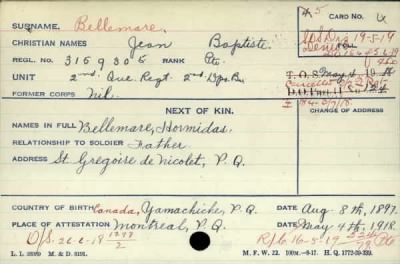 SURNAME. Bellemare. 5 CARD NO. 4
CHRISTIAN NAMES Jean Baptiste
REGL. NO. 3159306 RANK Pte.
UNIT 2nd Que. Regt. 2nd Dps. Bn.
FORMER CORPS Nil.
NEXT OF KIN. CHANGE OF ADDRESS
NAMES IN FULL Bellemare, Hormidas.
RELATIONSHIP TO SOLDIER Father.
ADDRESS St Gregoire de Nicolet, P.Q.
COUNTRY OF BIRTH Canada, Yamachiche, P.Q. DATE Aug 8th, 1897.
PLACE OF ATTESTATION Montreal, P.Q. DATE May 4th, 1918.
O/S. 26-6-18 R/6 16-5-19
M. F. W. 22.